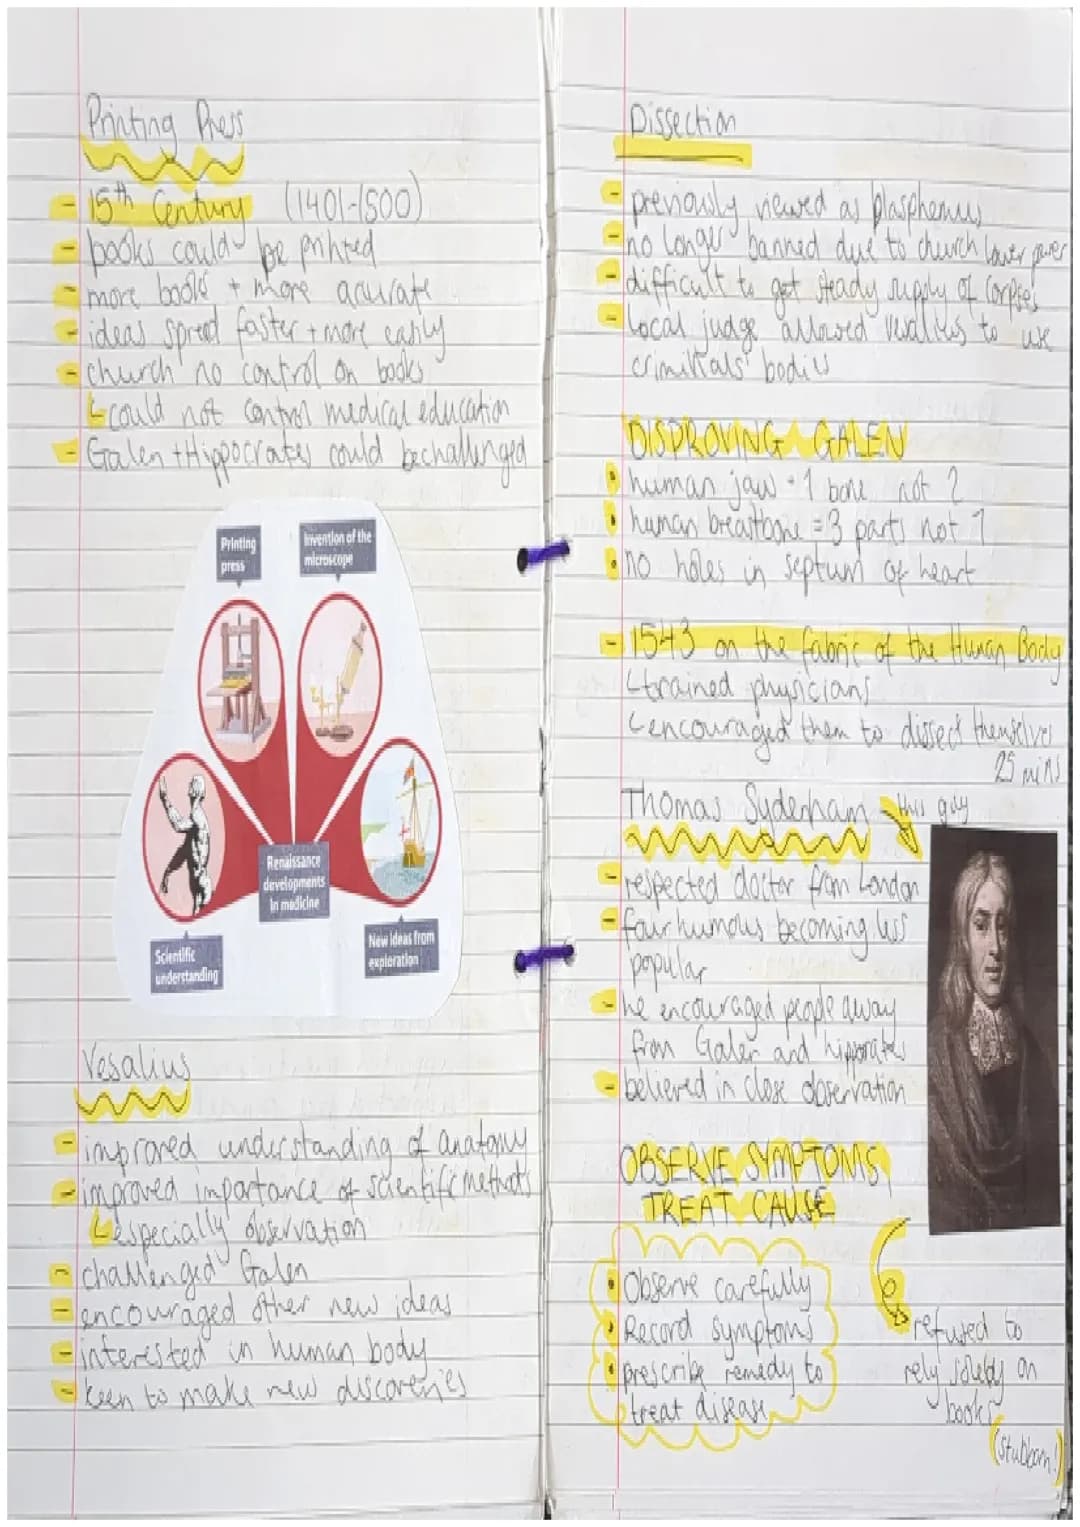 Printing Press
- 15th Century (1401-1500)
- books could be printed
- more books + more acurate
- ideas spread faster + more easily
- church no control on books
↳ could not control medical education
- Galen + Hippocrates could be challenged
Printing
press
Invention of the
microscope
Renaissance
developments
in medicine
Scientific
understanding
New ideas from
exploration
Vesalius
- improved understanding of anatomy
- improved importance of scientific methods
↳ especially observation
- challenged Galen
- encouraged other new ideas
- interested in human body
- keen to make new discoveries
Dissection
- previously viewed as blasphemus
- no longer banned due to church lower power
- difficult to get steady supply of corpses
- local judge allowed Vesalius to use
criminals' bodies
DISPROVING GALEN
• human jaw = 1 bone not 2
• human breastbone = 3 parts not 7
• no holes in septum of heart
- 1543 on the fabric of the Human Body
↳ trained physicians
↳ encouraged them to dissect themselves
25 mins
Thomas Sydenham → this guy
- respected doctor from London
- four humous becoming less
popular
- he encouraged people away
from Galen and hipporates
- believed in close observation
OBSERVE SYMPTOMS,
TREAT CAUSE
• Observe carefully
• Record symptoms
• prescribe remedy to
treat disease
refused to
rely solely on
books
(stubborn!)